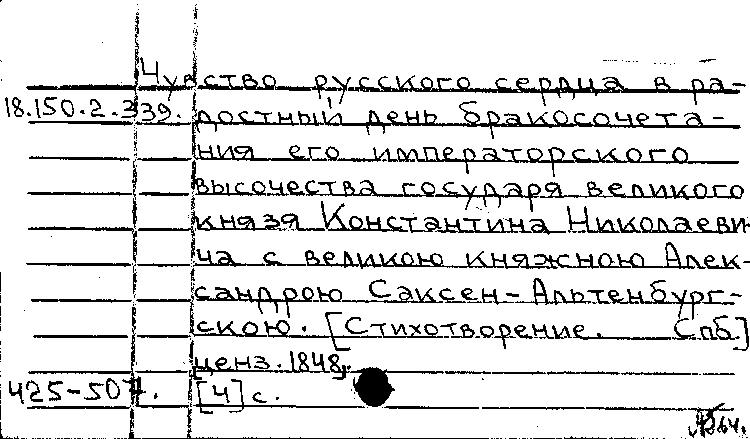 Чувство русского сердца в ра-
18.150.2.339. достный день бракосочета-
ния его императорского
высочества государя великого
князя Константина Николаеви-
ча с великою княжною Алек-
сандрою Саксен-Альтенбург-
скою. [Стихотворение. Спб.]
ценз. 1848.
425-507. [4] с.